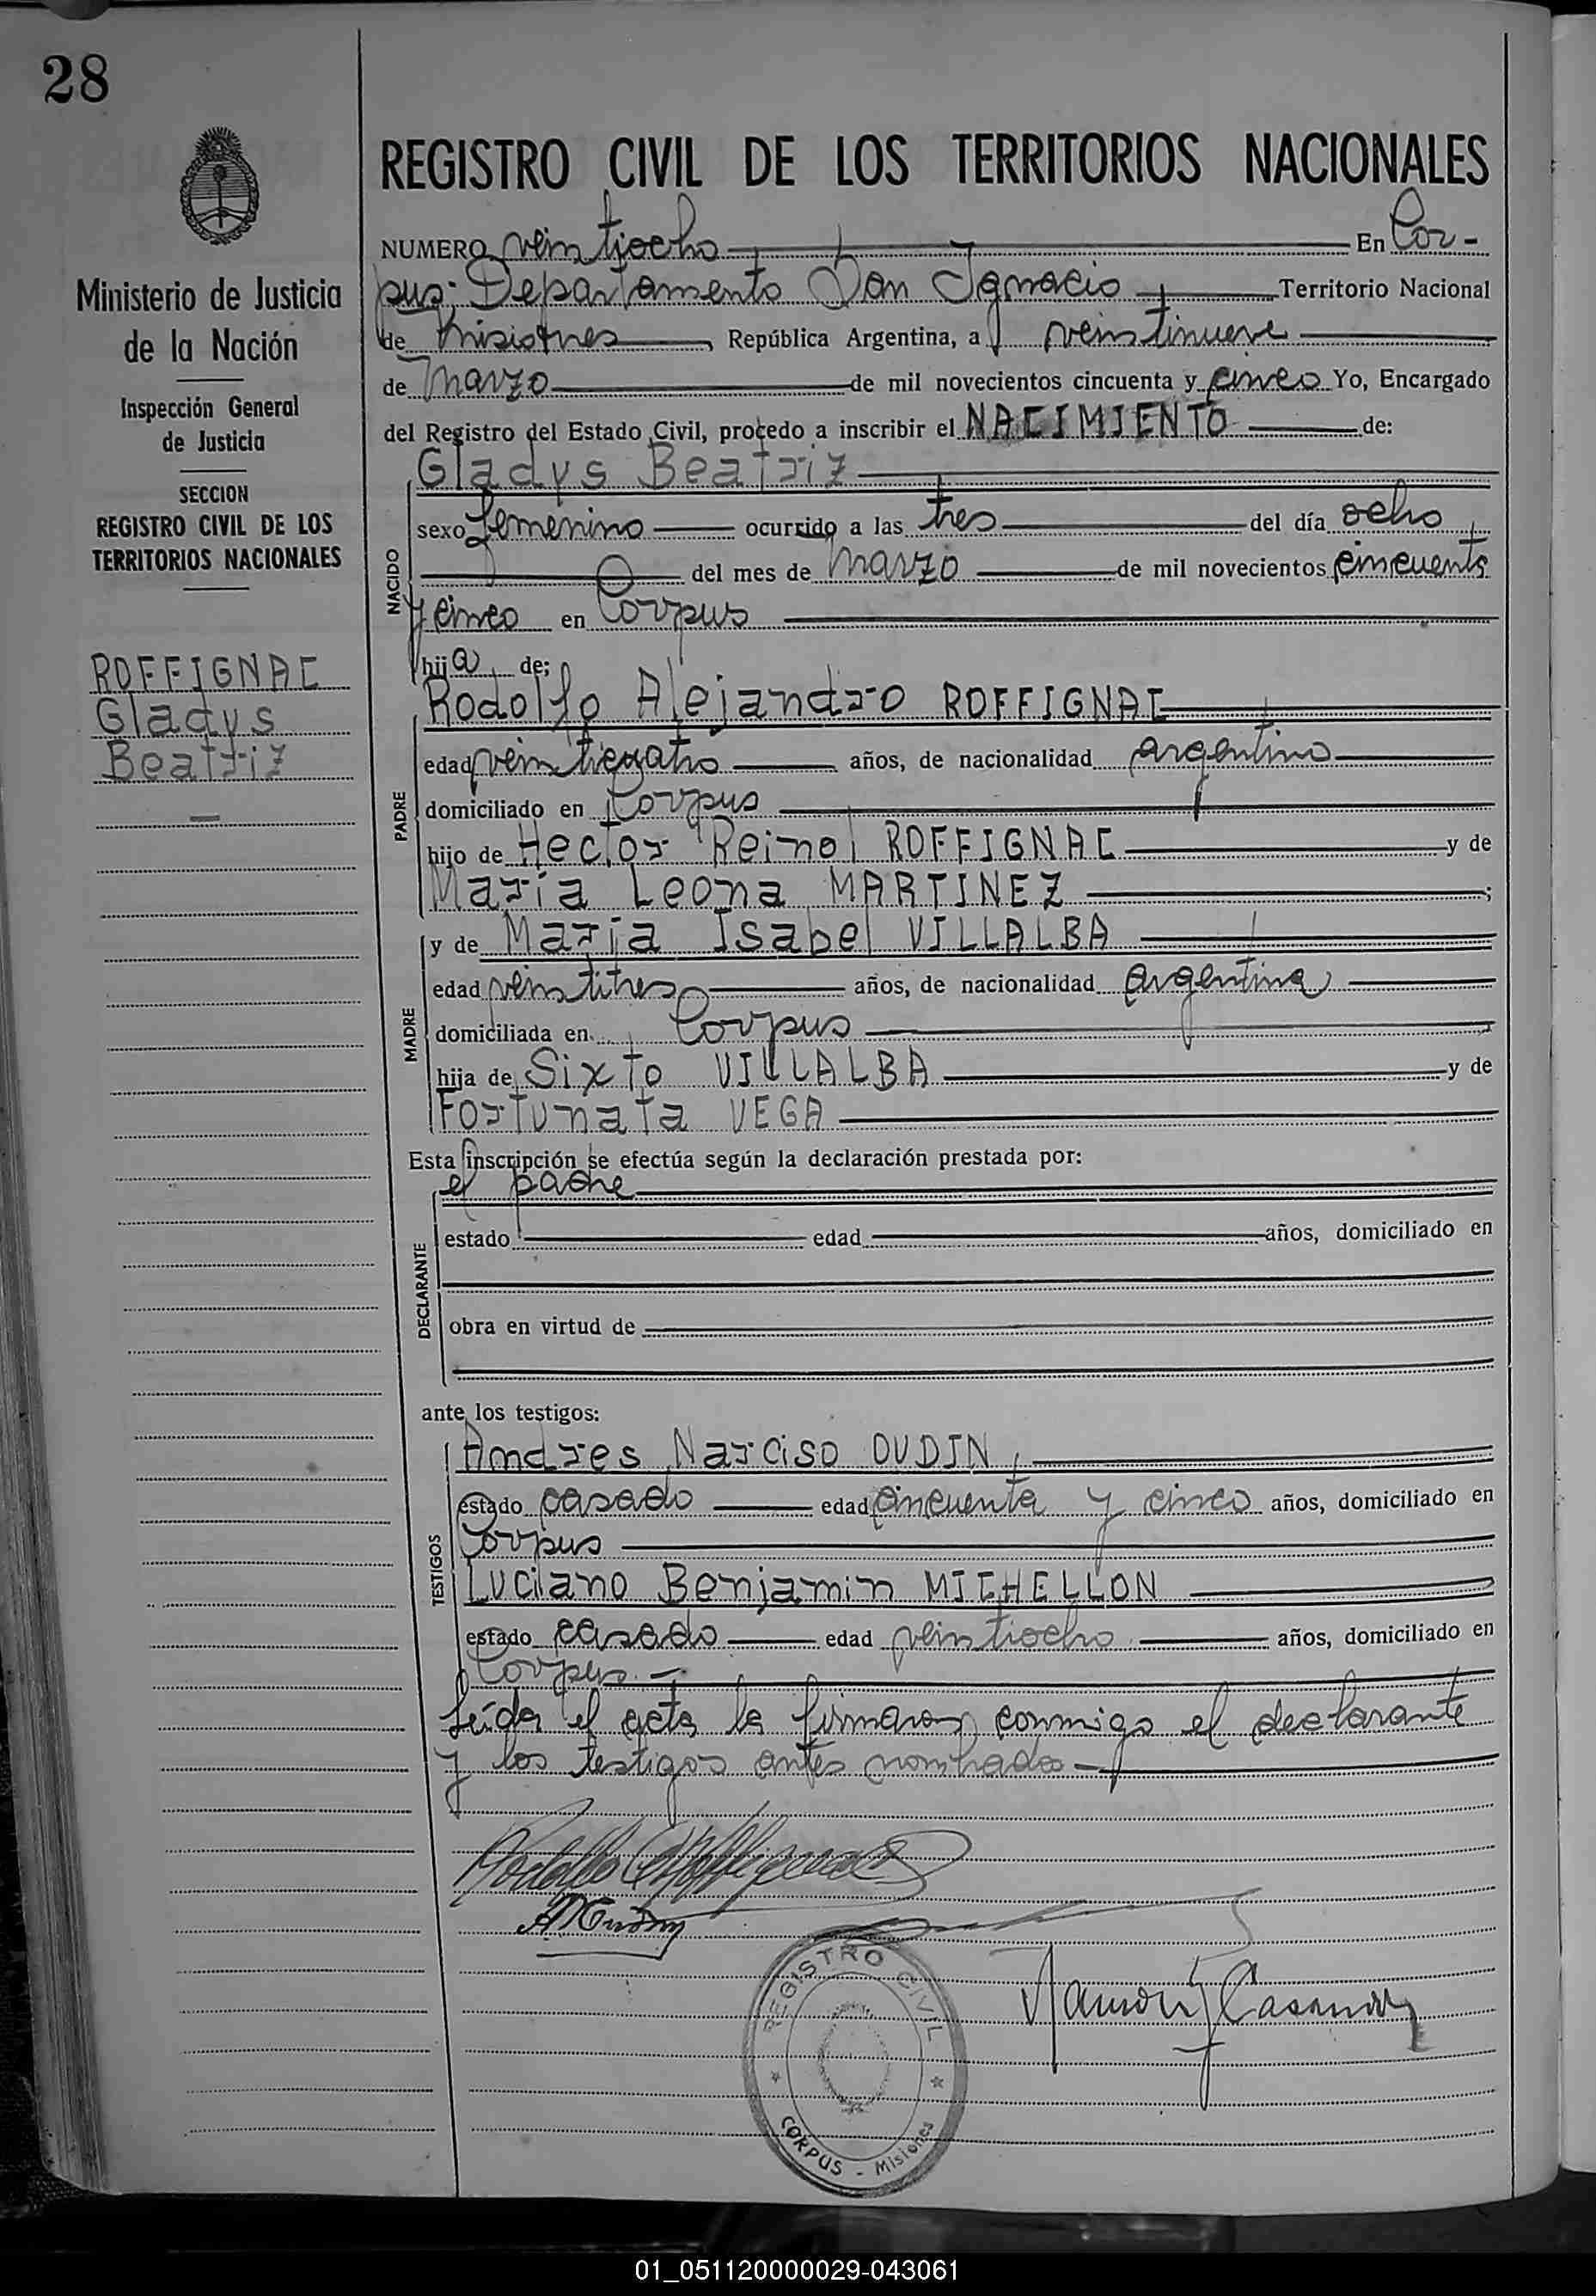 28
REGISTRO CIVIL DE LOS TERRITORIOS NACIONALES
Ministerio de Justicia
de la Nación
Inspección General
de Justicia
SECCION
REGISTRO CIVIL DE LOS
TERRITORIOS NACIONALES
ROFFIGNAC
Gladys
Beatriz
NUMERO veintiocho En Cor-
pus: Departamento San Ignacio Territorio Nacional
de Misiones, República Argentina, a veintinueve
de Marzo de mil novecientos cincuenta y cinco Yo, Encargado
del Registro del Estado Civil, procedo a inscribir el NACIMIENTO de:
Gladys Beatriz
NACIDO
sexo femenino ocurrido a las tres del día ocho
del mes de Marzo de mil novecientos cincuenta
y cinco en Corpus
hija de:
Rodolfo Alejandro ROFFIGNAC
PADRE
edad veinticuatro años, de nacionalidad argentino
domiciliado en Corpus
hijo de Hector Reinol ROFFIGNAC y de
Maria Leona MARTINEZ ;
MADRE
y de Maria Isabel VILLALBA
edad veintitres años, de nacionalidad argentina
domiciliada en Corpus
hija de Sixto VILLALBA y de
Fortunata VEGA
Esta inscripción se efectúa según la declaración prestada por:
el padre
DECLARANTE
estado edad años, domiciliado en
obra en virtud de
ante los testigos:
TESTIGOS
Andres Narciso OUDIN,
estado casado edad cincuenta y cinco años, domiciliado en
Corpus
Luciano Benjamin MICHELLON
estado casado edad veintiocho años, domiciliado en
Corpus.-
Leída el acta la firmaron conmigo el declarante
y los testigos antes nombrados-
REGISTRO CIVIL
CORPUS - Misiones
01_051120000029-043061